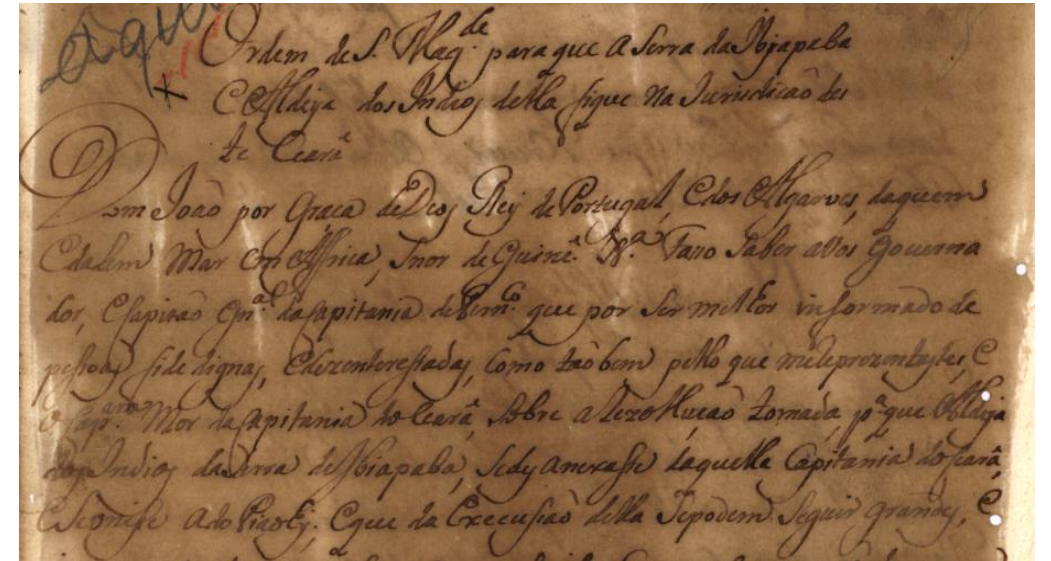 aqui
Ordem de S. Mag.de para que a Serra da Ibiapaba
E Aldeya dos Indios della fique na Jurisdicaõ des
te Ceará
Dom Joaõ por Graca de Deos Rey de Portugal, E dos Algarves, daquem
E dalem Mar em Africa, Snor de Guiné. &.ª Faço Saber a Vos Governa
dor, E Capitaõ Gn.al da Capitania de Pern.co que por Ser melhor informado de
pessoas fide dignas, E dezenteressadas, Como taõbem pello que me reprezentastes, E
o Cap.am Mor da Capitania do Ceará, Sobre a Rezolucaõ tomada, p.ª que Aldeya
dos Indios da Serra de Ibiapaba, Se dezanexasse daquella Capitania do Seará,
E Se onisse a do Piaohy. E que da Execusaõ della Se podem Seguir grandes, E